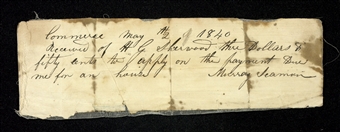 Commerce May 1840
Received of H G Sherwood three Dollars &
fifty cents to apply on the payment Due
me for an house Melvay Seamon